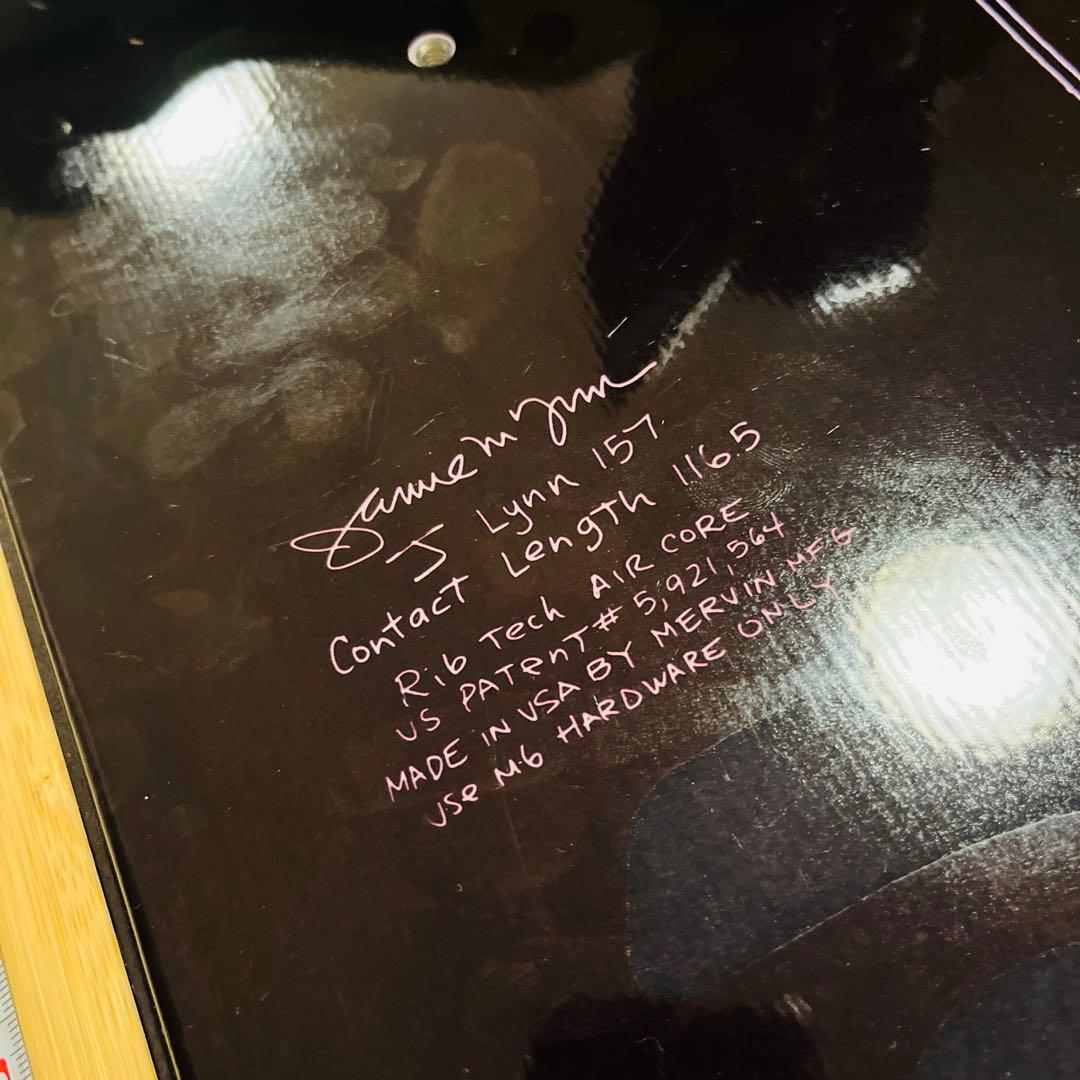 Jamie Lynn
J Lynn 157
Contact Length 116.5
Rib Tech AIR CORE
US PATENT# 5,921,564
MADE IN USA BY MERVIN MFG
USE M6 HARDWARE ONLY